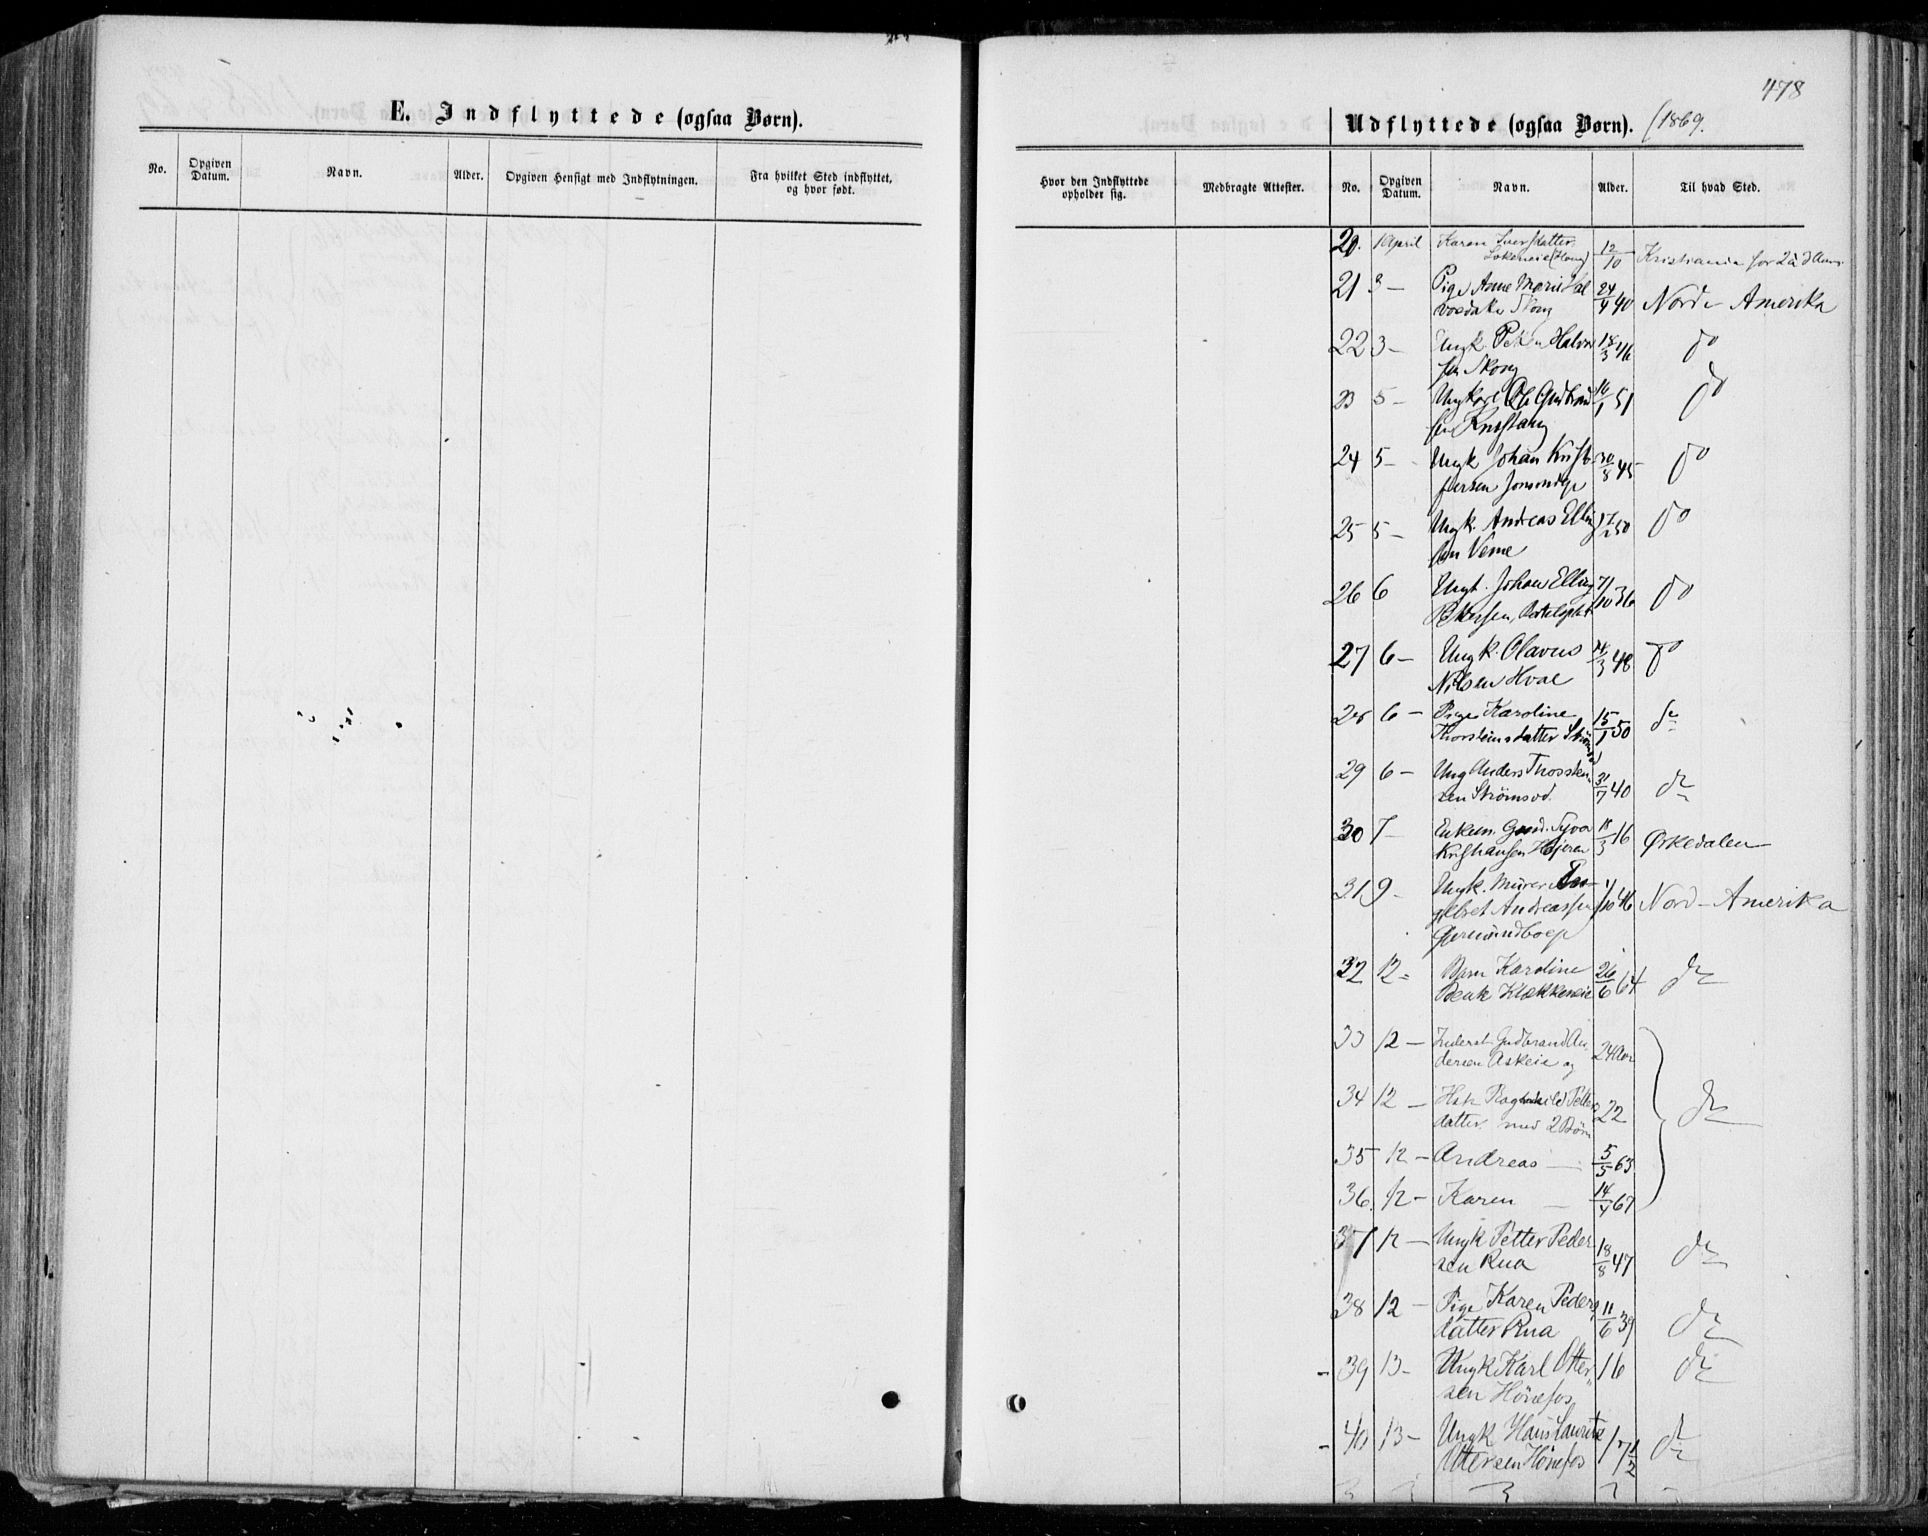 478
E. Indflyttede (ogsaa Børn).
No.
Opgiven Datum.
Navn.
Alder.
Opgiven Hensigt med Indflytningen.
Fra hvilket Sted indflyttet, og hvor født.
Udflyttede (ogsaa Børn). 1869.
Hvor den Indflyttede opholder sig.
Medbragte Attester.
No.
Opgiven Datum.
Navn.
Alder.
Til hvad Sted.
20. 1 April Karen 12/10 Kristiania for
21 3 – Pige Anne Marie Hal
Skong 24/4 40 Nord-Amerika
22 3 – Ungk. Halvor
sen Skong 18/3 46 do
23 5 – Ungkarl Ole Gudbrand
sen 16/1 51 do
24 5 – Ungk Johan Krist
30/8 45 do
25 5 – Ungk. Andreas Elling
sen Veme 50 do
26 6 Ungk. Johan Elling
Pettersen, 7/10 36 do
27 6 – Ungk. Olavus
Nilsen Hval 48 do
28 6 – Pige Karoline
Thorsteinsdatter 15/1 50 do
29 6 – Ung Anders Thorsten
sen Strømsod. 31/7 40 do
30 7 – Enkem. Gmd. Syver
Kristiansen 18/3 16 Ørkedalen
31 9 – Ungk. Murer
Andreassen 46 Nord-Amerika
32 12 – Barn Karoline
Beate Klækkeneie 26/6 64 do
33 12 – Inderst Gudbrand An
dersen Askeie og 24 Aar
34 12 – Hst Ragnhild Petters
datter. med 2 Børn 22 do
35 12 – Andreas – 5/5 63
36. 12 – Karen – 14/4 67
37 12 – Ungk Petter Peder
sen Rua 18/8 47 do
38 12 – Pige Karen Peders
datter Rua 11/6 39 do
39 13 – Ungk Karl Otter
sen Hönefos 16 do
40 13 – Ungk Hans Lauritz
Ottersen Hönefos 17 1/2 do